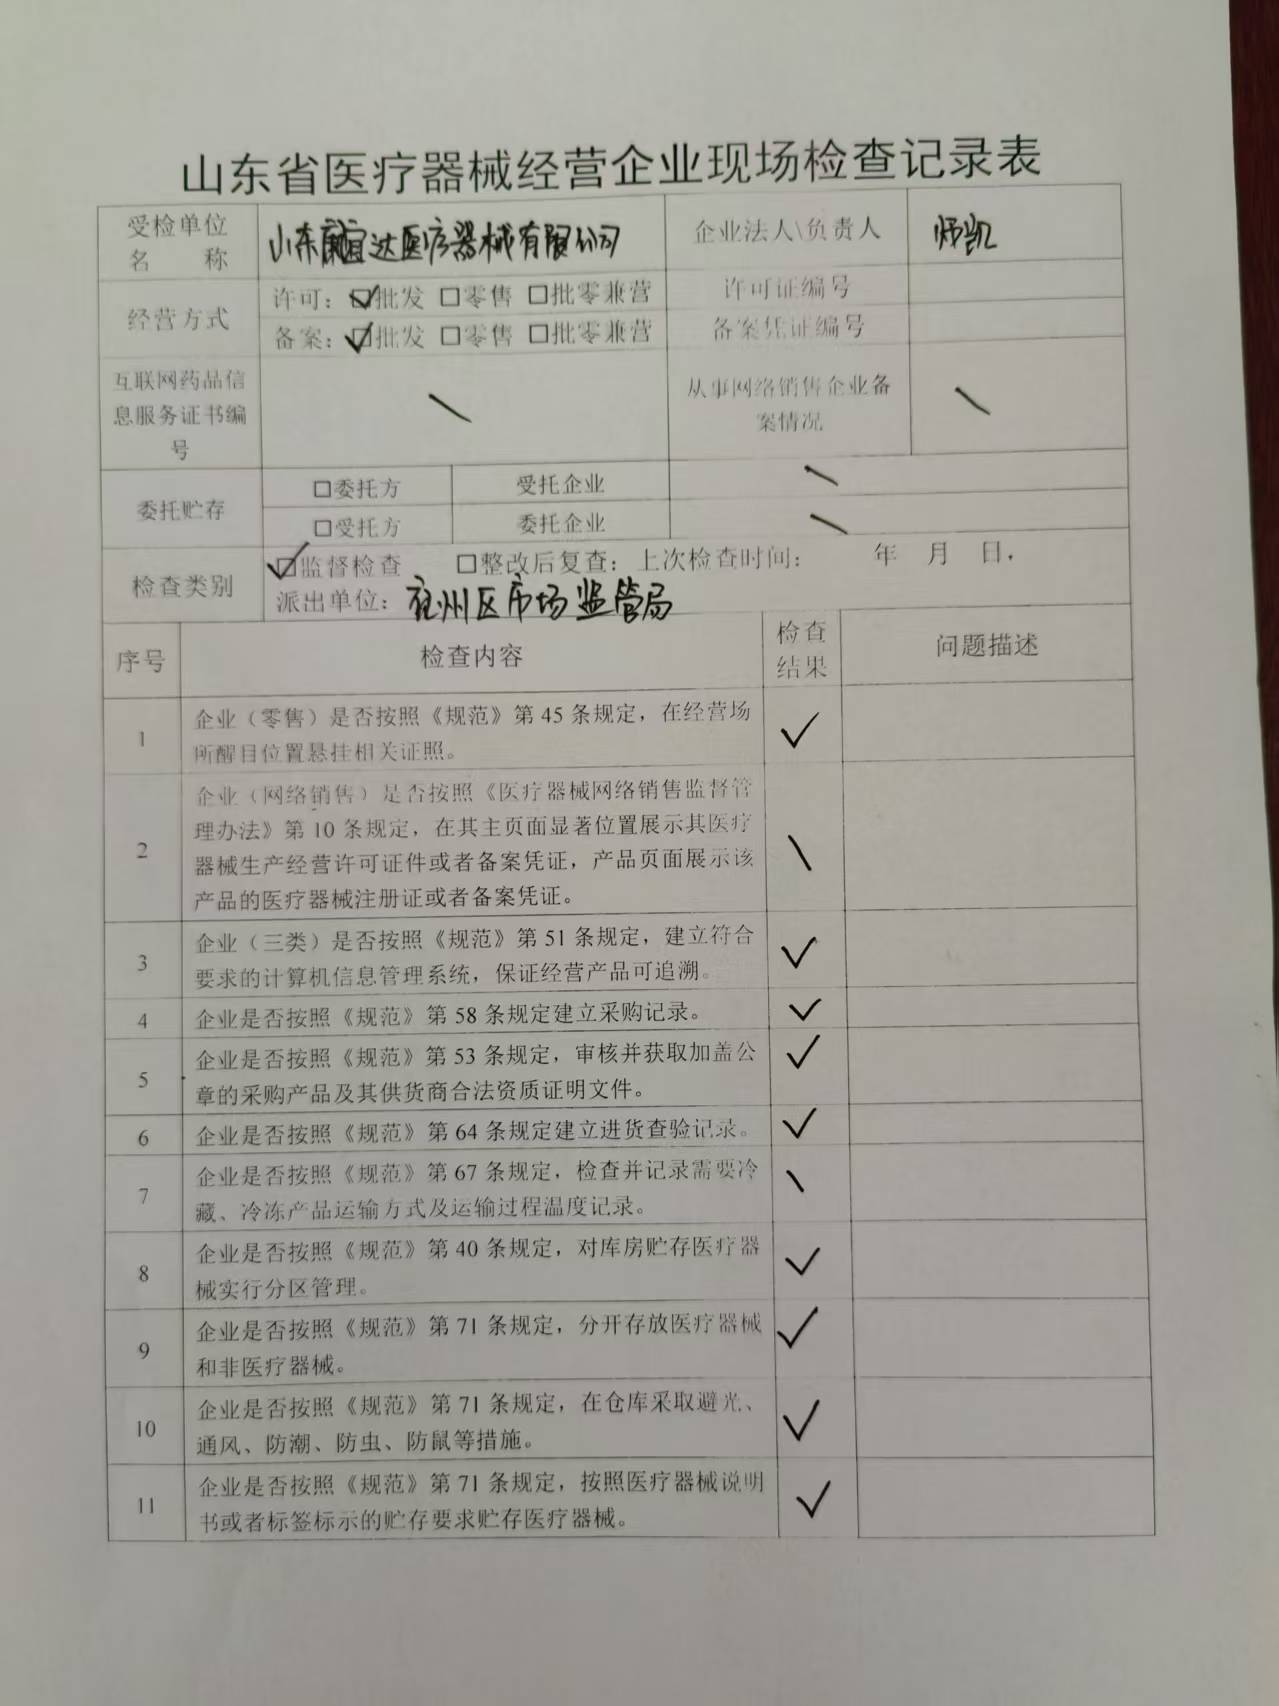 山东省医疗器械经营企业现场检查记录表
受检单位
名 称
山东康宜达医疗器械有限公司
企业法人\负责人
师凯
经营方式
许可：☑批发 □零售 □批零兼营
许可证编号
备案：☑批发 □零售 □批零兼营
备案凭证编号
互联网药品信
息服务证书编
号
从事网络销售企业备
案情况
委托贮存
□委托方
受托企业
□受托方
委托企业
检查类别
☑监督检查 □整改后复查：上次检查时间： 年 月 日，
派出单位：兖州区市场监管局
序号
检查内容
检查
结果
问题描述
1
企业（零售）是否按照《规范》第 45 条规定，在经营场
所醒目位置悬挂相关证照。
✓
2
企业（网络销售）是否按照《医疗器械网络销售监督管
理办法》第 10 条规定，在其主页面显著位置展示其医疗
器械生产经营许可证件或者备案凭证，产品页面展示该
产品的医疗器械注册证或者备案凭证。
\
3
企业（三类）是否按照《规范》第 51 条规定，建立符合
要求的计算机信息管理系统，保证经营产品可追溯。
✓
4
企业是否按照《规范》第 58 条规定建立采购记录。
✓
5
企业是否按照《规范》第 53 条规定，审核并获取加盖公
章的采购产品及其供货商合法资质证明文件。
✓
6
企业是否按照《规范》第 64 条规定建立进货查验记录。
✓
7
企业是否按照《规范》第 67 条规定，检查并记录需要冷
藏、冷冻产品运输方式及运输过程温度记录。
\
8
企业是否按照《规范》第 40 条规定，对库房贮存医疗器
械实行分区管理。
✓
9
企业是否按照《规范》第 71 条规定，分开存放医疗器械
和非医疗器械。
✓
10
企业是否按照《规范》第 71 条规定，在仓库采取避光、
通风、防潮、防虫、防鼠等措施。
✓
11
企业是否按照《规范》第 71 条规定，按照医疗器械说明
书或者标签标示的贮存要求贮存医疗器械。
✓